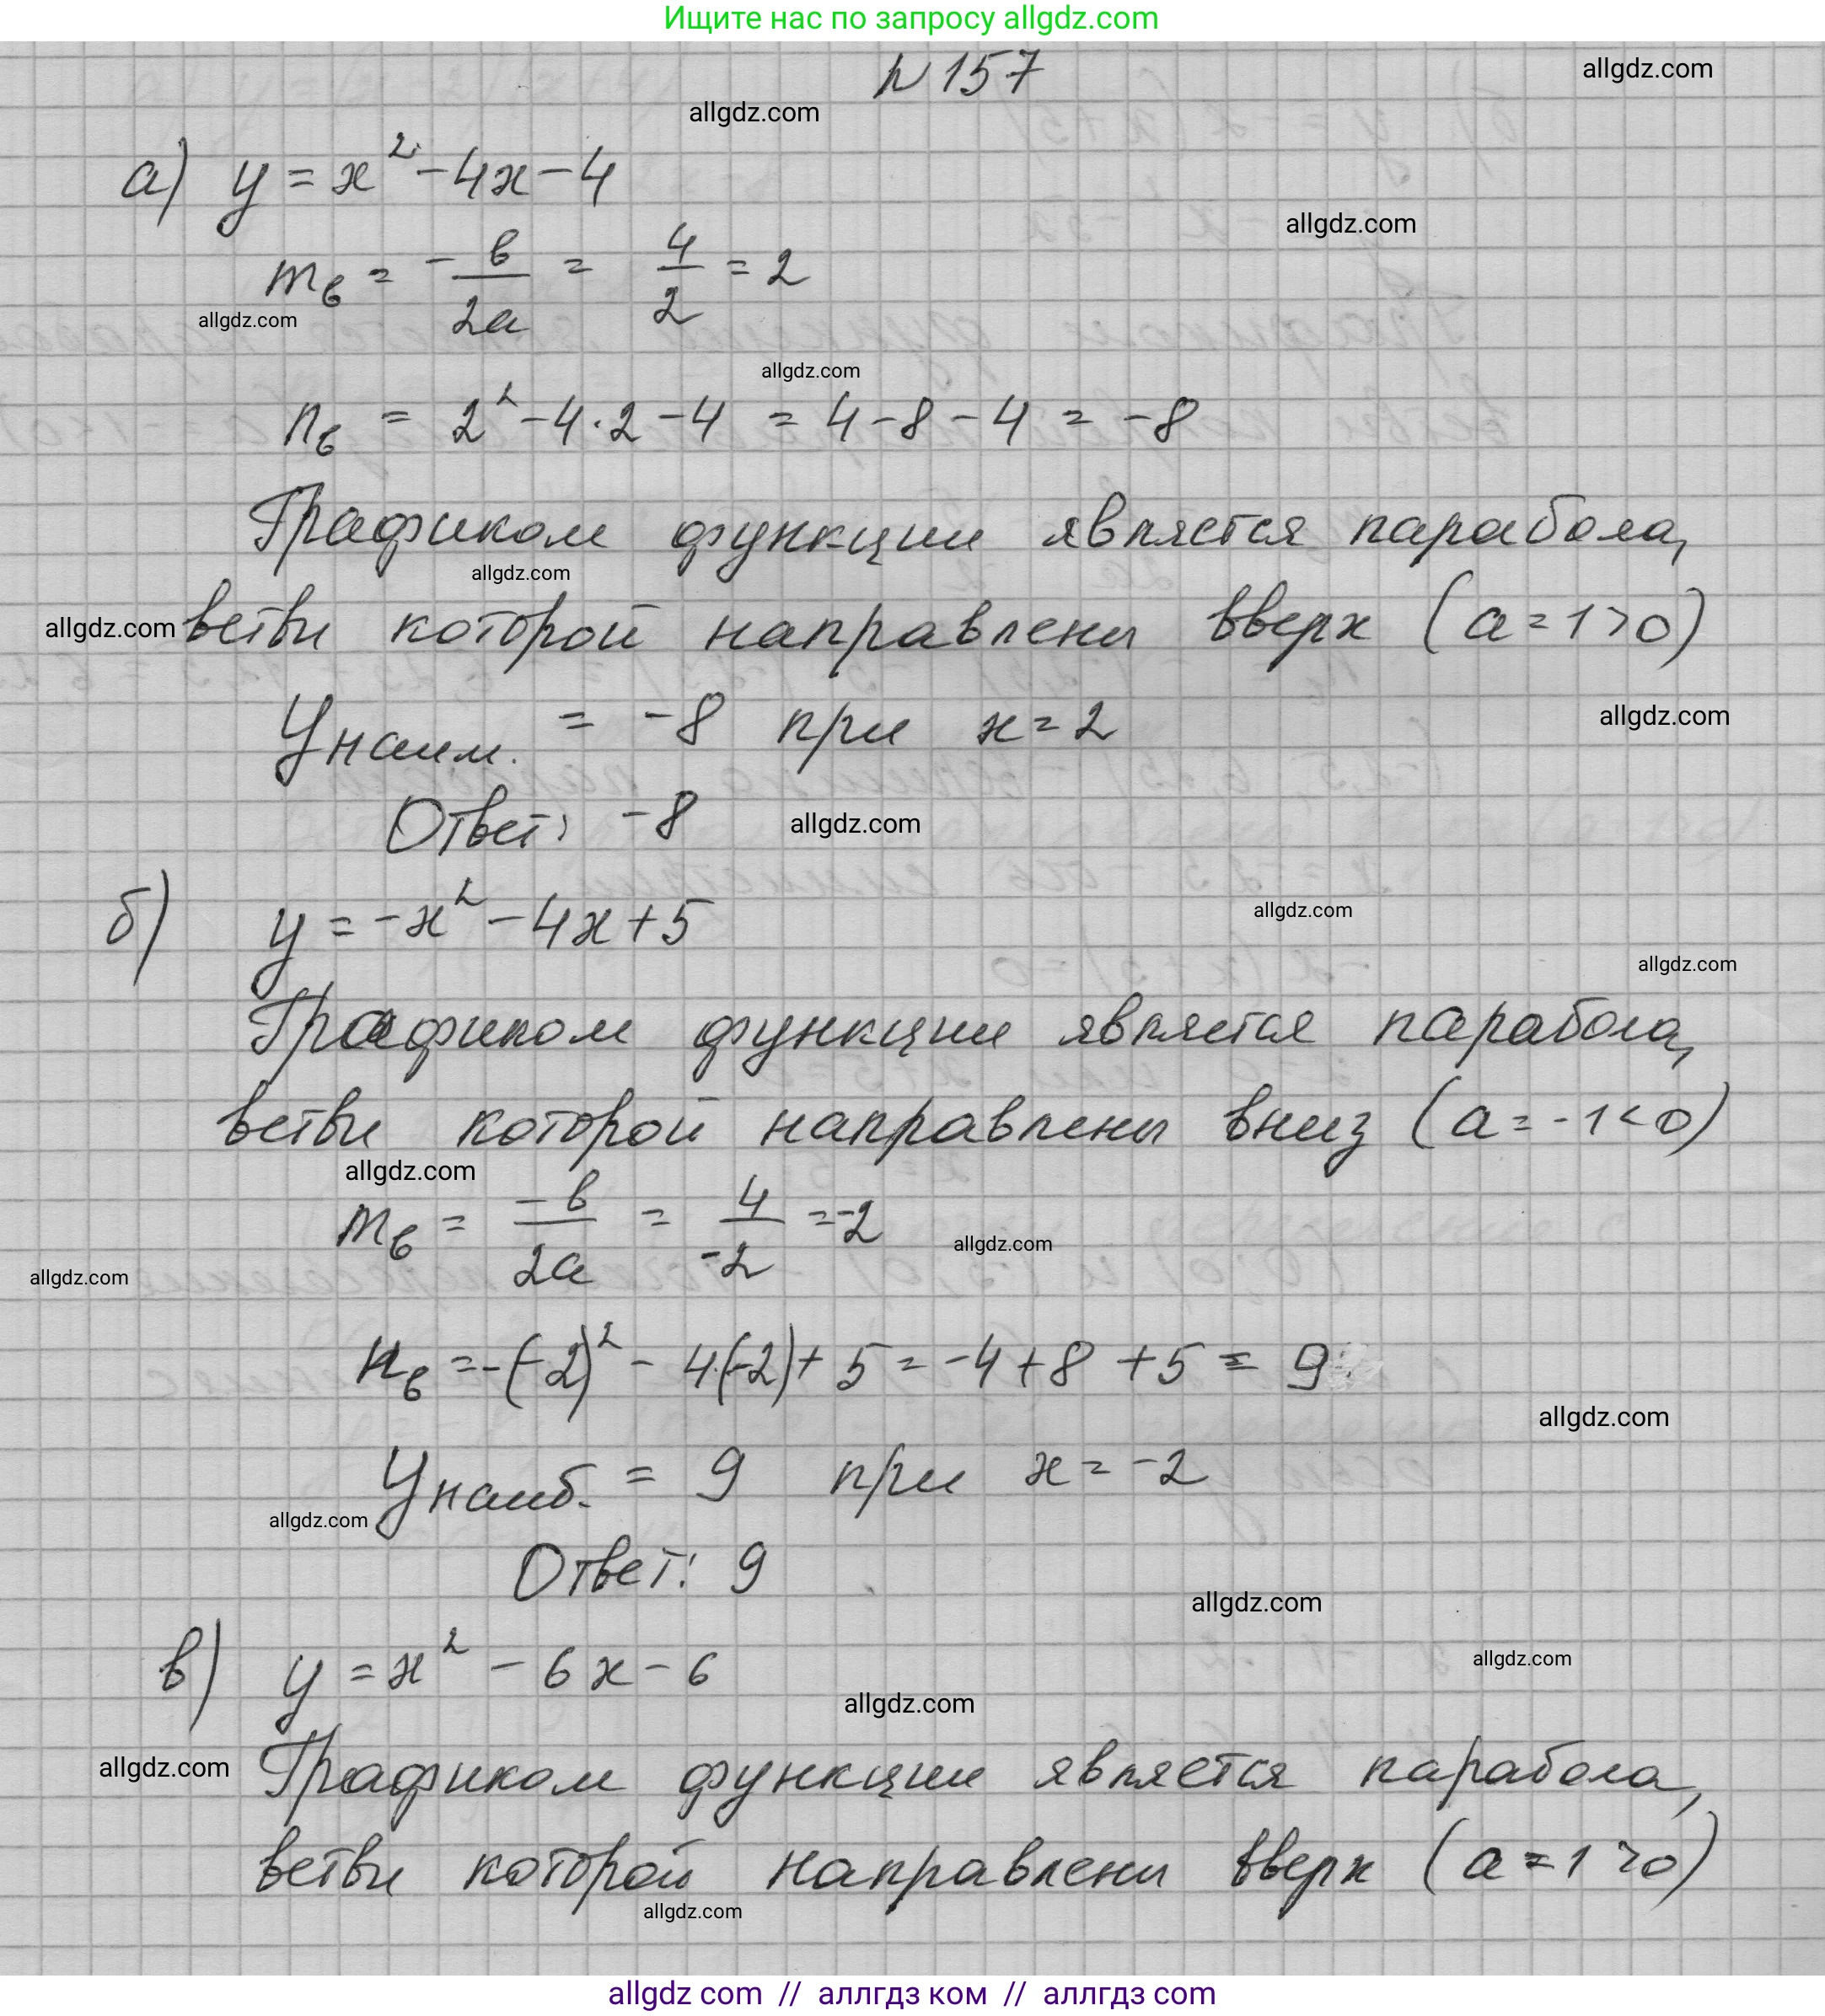 Ищите нас по запросу allgdz.com
№157
allgdz.com
allgdz.com
а) y = x² - 4x - 4
allgdz.com
m_в = - в/2а = 4/2 = 2
allgdz.com
allgdz.com
n_в = 2² - 4·2 - 4 = 4 - 8 - 4 = -8
Графиком функции является парабола,
allgdz.com
allgdz.com ветви которой направлены вверх (а = 1 > 0)
У наим. = -8 при x = 2
allgdz.com
Ответ: -8
allgdz.com
б) y = -x² - 4x + 5
allgdz.com
allgdz.com
Графиком функции является парабола,
ветви которой направлены вниз (а = -1 < 0)
allgdz.com
m_в = -в/2а = 4/-2 = -2
allgdz.com
allgdz.com
n_в = -(-2)² - 4·(-2) + 5 = -4 + 8 + 5 = 9
allgdz.com
У наиб. = 9 при x = -2
allgdz.com
Ответ: 9
allgdz.com
в) y = x² - 6x - 6
allgdz.com
allgdz.com
allgdz.com Графиком функции является парабола,
ветви которой направлены вверх (а = 1 > 0)
allgdz.com
allgdz com // аллгдз ком // аллгдз com